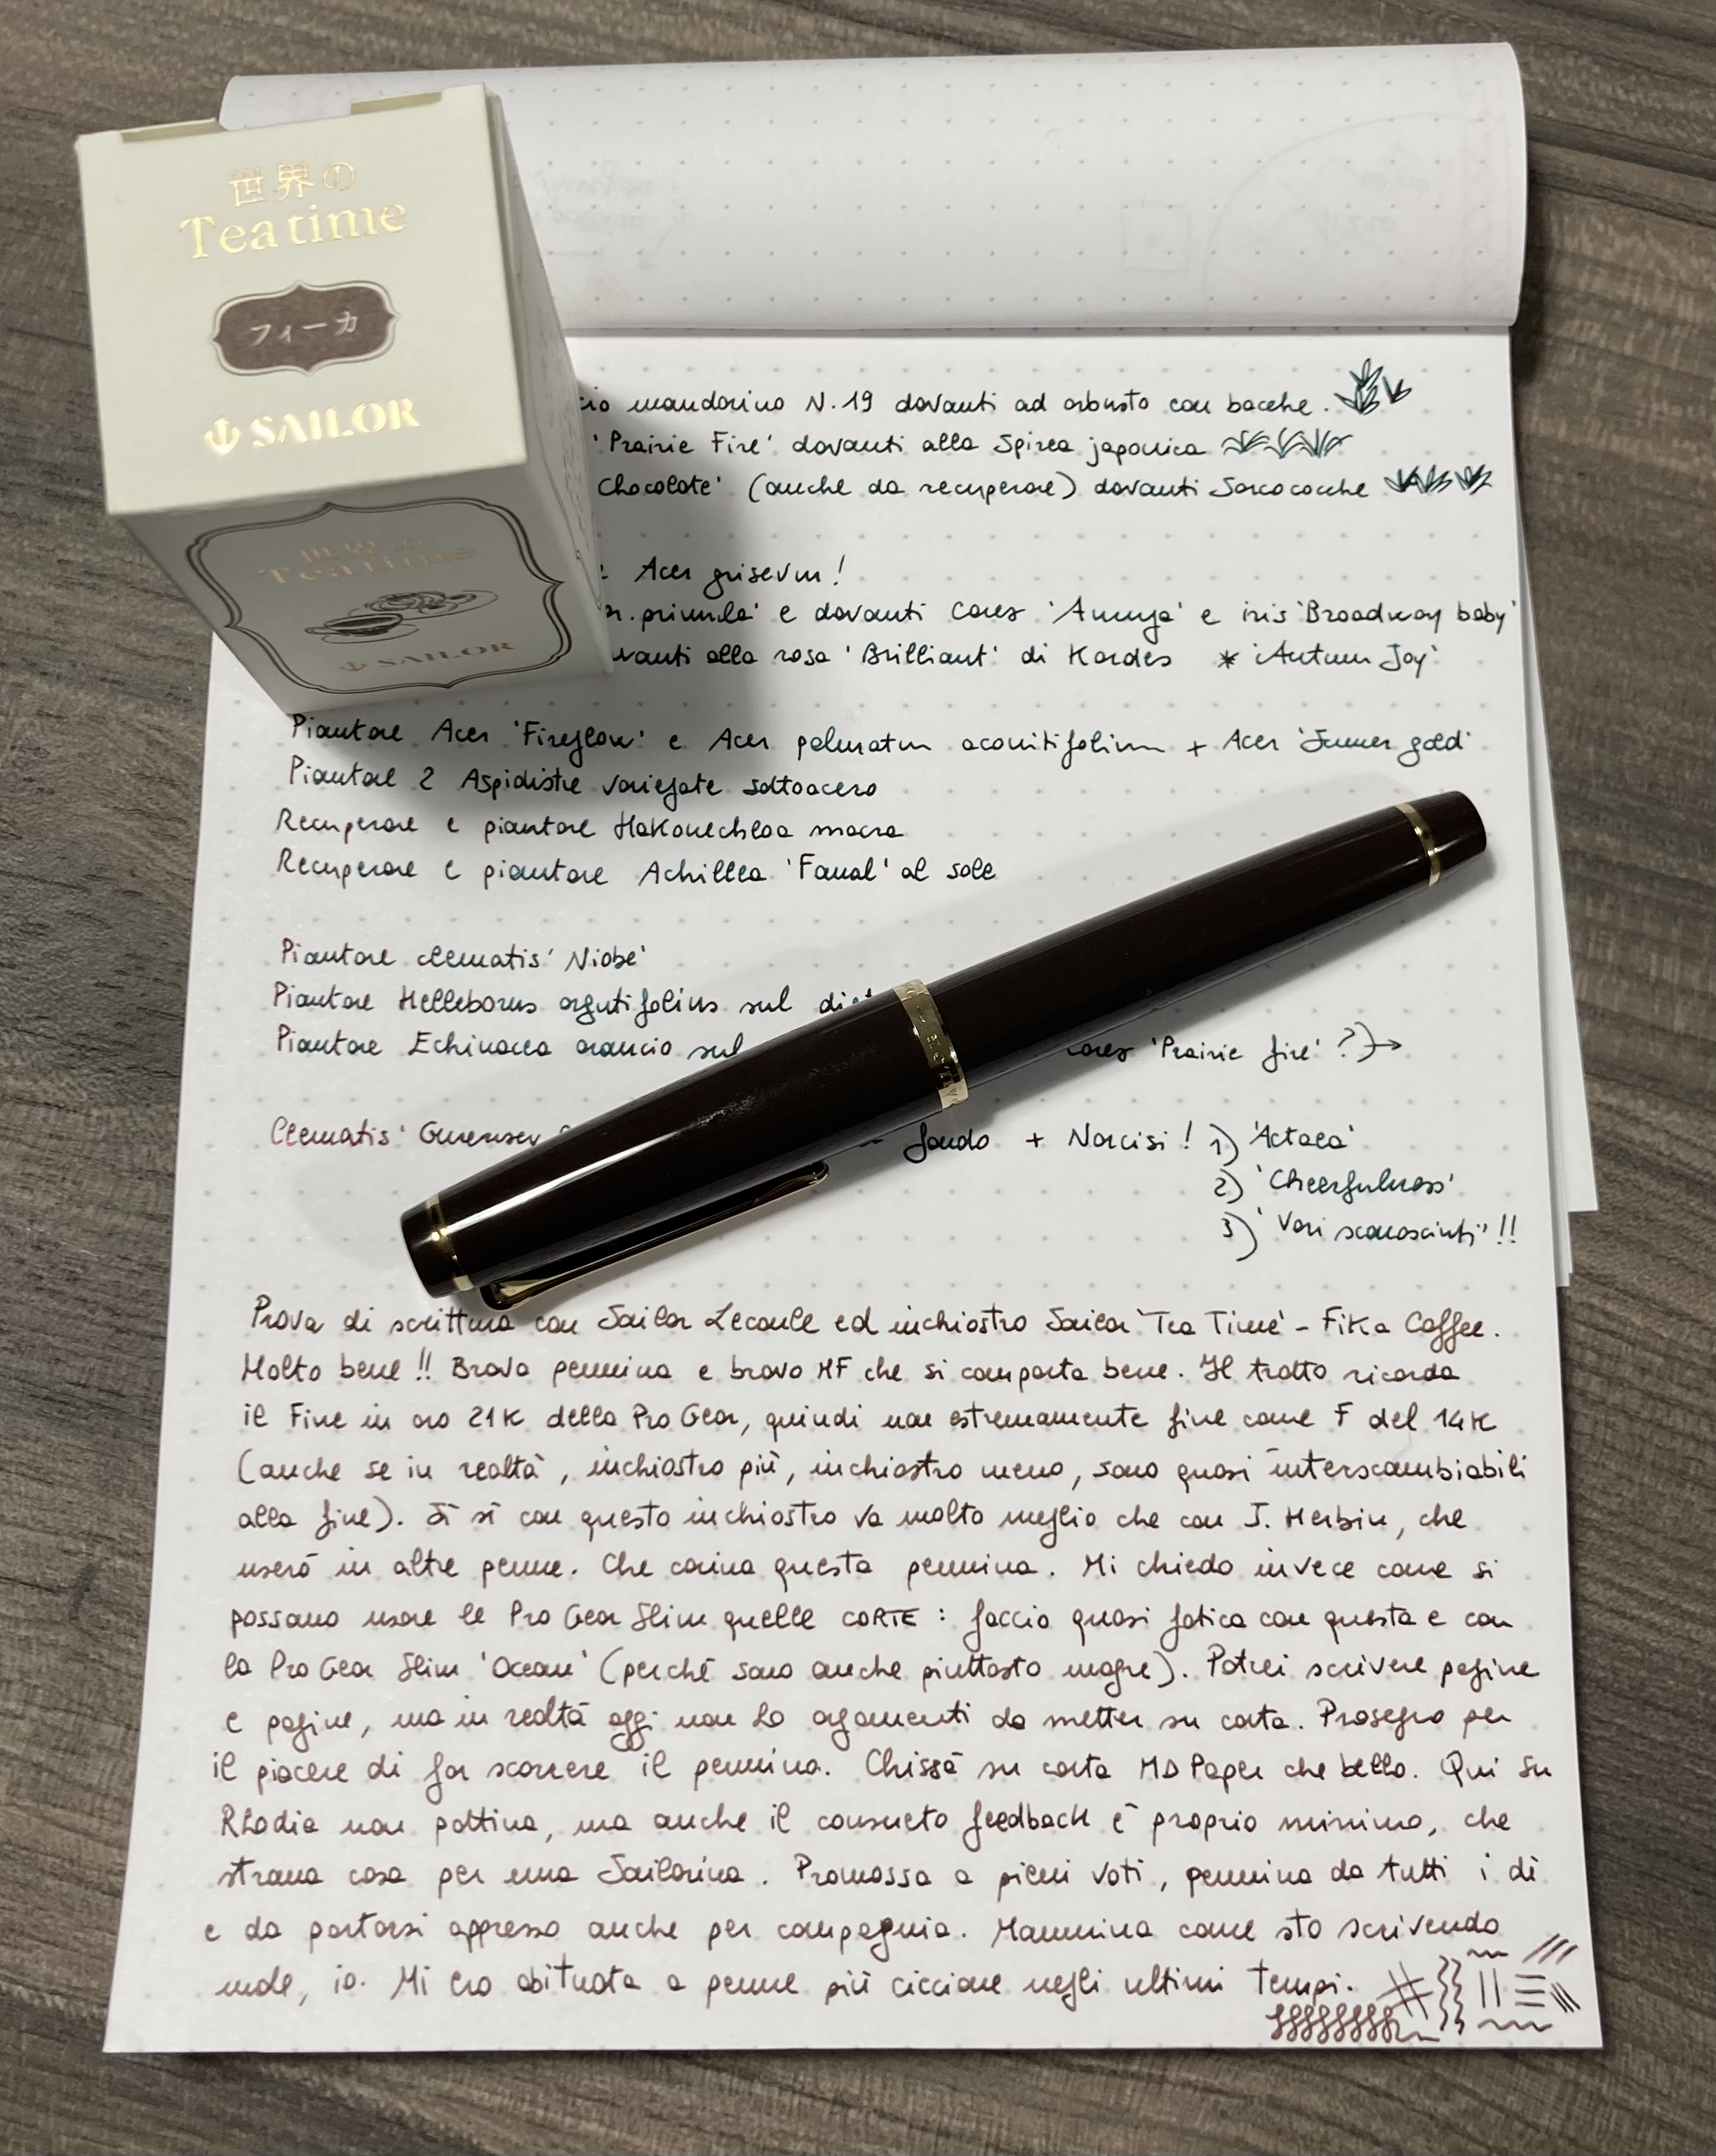 世界の
Tea time
フィーカ
SAILOR
世界の
Tea time
SAILOR
mandarino N.19 davanti ad arbusto con bacche.
'Prairie Fire' davanti alla Spirea japonica
Chocolate' (anche da recuperare) davanti Sarcococche
Acer griseum!
primula' e davanti Carex 'Amuya' e iris 'Broadway baby'
alla rosa 'Brilliant' di Kordes * 'Autum Joy'
Piantare Acer 'Fireglow' e Acer palmatum aconitifolium + Acer 'Summer gold'
Piantare 2 Aspidistre variegate sottoacero
Recuperare e piantare Hakonechloa macra
Recuperare e piantare Achillea 'Fanal' al sole
Piantare clematis 'Niobe'
Piantare Helleborus argutifolius sul
Piantare Echinacea arancio sul carex 'Prairie fire' ?)→
Clematis 'Guernsey fondo + Narcisi! 1) 'Actaea'
2) 'Cheerfulness'
3) "Vari sconosciuti" !!
Prova di scrittura con Sailor Lecoule ed inchiostro Sailor 'Tea Time' - Fika Coffee.
Molto bene!! Brava pennina e bravo MF che si comporta bene. Il tratto ricorda
il Fine in oro 21K della Pro Gear, quindi non estremamente fine come F del 14K
(anche se in realtà, inchiostro più, inchiostro meno, sono quasi interscambiabili
alla fine). Sì sì con questo inchiostro va molto meglio che con J. Herbin, che
userò in altre penne. Che carina questa pennina. Mi chiedo invece come si
possano usare le Pro Gear Slim quelle CORTE: faccio quasi fatica con questa e con
la Pro Gear Slim 'Ocean' (perché sono anche piuttosto magre). Potrei scrivere pagine
e pagine, ma in realtà oggi non ho argomenti da metter su carta. Proseguo per
il piacere di far scorrere il pennino. Chissà su carta MD Paper che bello. Qui su
Rhodia non pattina, ma anche il consueto feedback è proprio minimo, che
strana cosa per una Sailorina. Promossa a pieni voti, pennina da tutti i dì
e da portarsi appresso anche per compagnia. Mammina come sto scrivendo
male, io. Mi ero abituata a penne più ciccione negli ultimi tempi.